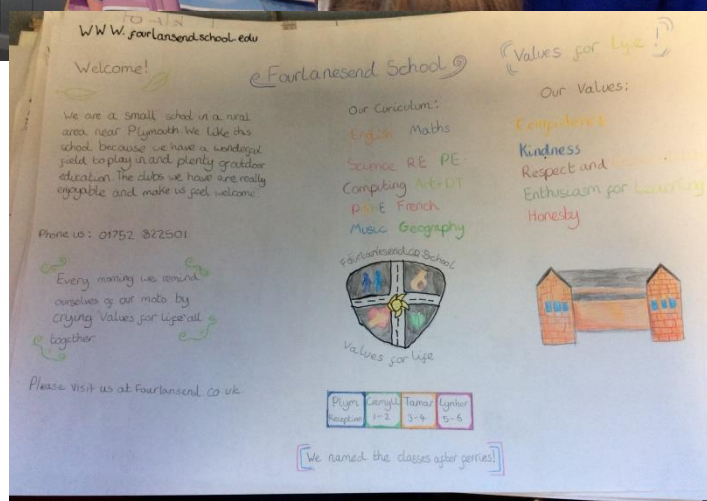 WWW.fourlansend.school.edu
Welcome!
We are a small school in a rural
area near Plymouth. We like this
school because we have a wonderful
field to play in and plenty
education. The clubs we have are really
enjoyable and make us feel welcome.
Phone us: 01752 822501
Every morning we remind
ourselves of our moto by
crying Values for Life all
together.
Please visit us at Fourlansend.co.uk
Fourlanesend School
Our Curiculum:
English Maths
Science RE PE
Computing Art+DT
PSHE French
Music Geography
Fourlanesend CP School
Values for life
Plym Tamar Lynher
Reception 1-2 3-4 5-6
We named the classes after ferries!
Values for Life!
Our Values:
Kindness
Respect and
Enthusiasm for Learning
Honesty